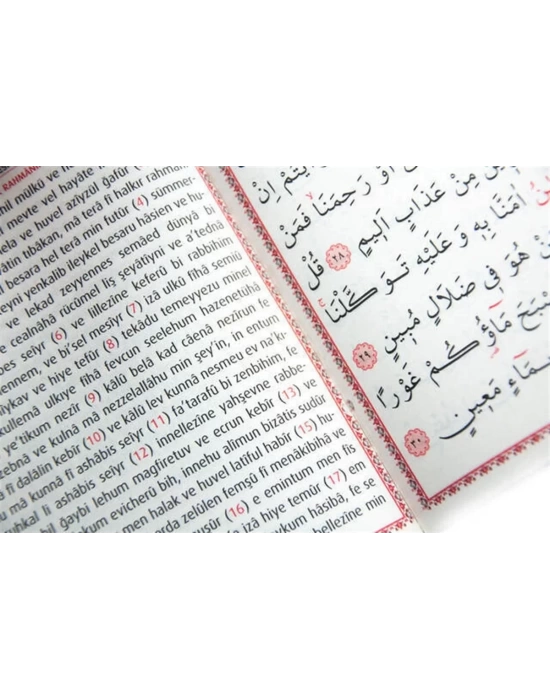 RAHMAN
mülkü ve
meyte vel hayâte
ve huvel azîyzül ğafûr
tıbâkan, mâ terâ fî halkır rahman
besara hel terâ min futûr (4) sümmer-
yenkalib ileykel besaru hâsien ve hu-
ve lekad zeyyennes semâed dünyâ bi
cealnâhâ rücûmel liş şeyâtiyni ve a'tednâ
seıyr (6) ve lillezîne keferû bi rabbihim
ennem, ve bi'sel mesıyr (7) izâ ulkû fîhâ semiû
ve hiye tefûr (8) tekâdu temeyyezu minel
kullemâ ulkıye fîhâ fevcun seelehum hazenetühâ
e'tikum nezîr (9) kâlû belâ kad câenâ nezîrun fe
zebnâ ve kulnâ mâ nezzelallâhu min şey'in, in entum
fî dalâlin kebîr (10) ve kâlû lev kunnâ nesmeu ev na'k-
mâ kunnâ fî ashâbis seıyr (11) fa'terafû bi zenbihim, fe
uhkal li ashâbis seıyr (12) innellezîne yahşevne rabbe-
bil ğaybi lehum mağfiretuv ve ecrun kebîr (13) ve
kum evicherû bih, innehu alîmun bizâtis sudûr
men halak ve huvel latîful habîr (15) hu-
arda zelûlen femşû fî menâkibihâ ve
nuşûr (16) e emintum men fis
izâ hiye temûr (17) em
aykum hâsibâ, fe se
bellezîne min
اَوْ رَحِمَنَا فَمَنْ
مِنْ عَذَابٍ اَلِيمٍ ٢٨ قُلْ
اٰمَنَّا بِهِ وَعَلَيْهِ تَوَكَّلْنَا
هُوَ فِي ضَلَالٍ مُبِينٍ ٢٩
مَاؤُكُمْ غَوْرًا
مَعِينٍ ٣٠